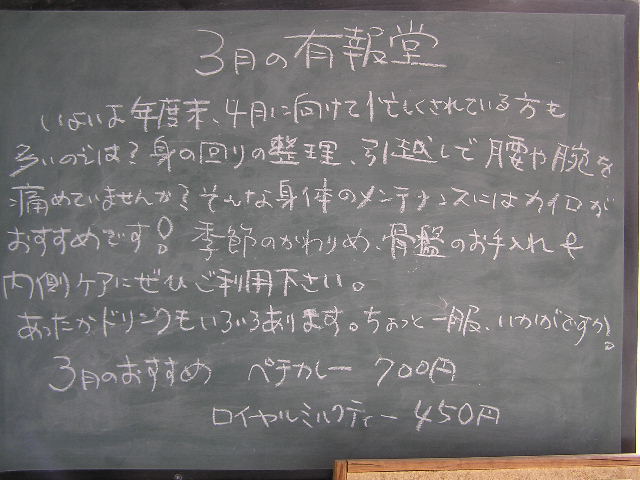 3月の有報堂
いよいよ年度末、4月に向けて忙しくされている方も
多いのでは？身の回りの整理、引越しで腰や腕を
痛めていませんか？そんな身体のメンテナンスにはカイロが
おすすめです！季節のかわりめ、骨盤のお手入れや
内側ケアにぜひご利用下さい。
あったかドリンクもいろいろあります。ちょっと一服、いかがですか？
3月のおすすめ ベテカレー 700円
ロイヤルミルクティー 450円